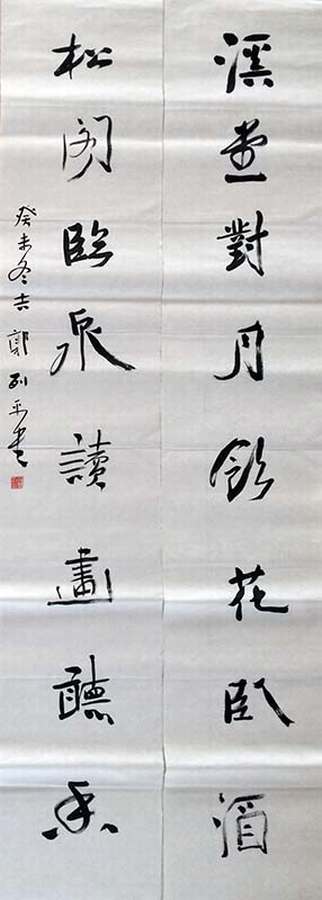 溪堂對月飲花臥酒
松閣臨泉讀畫聽香
癸未冬吉郭列平書